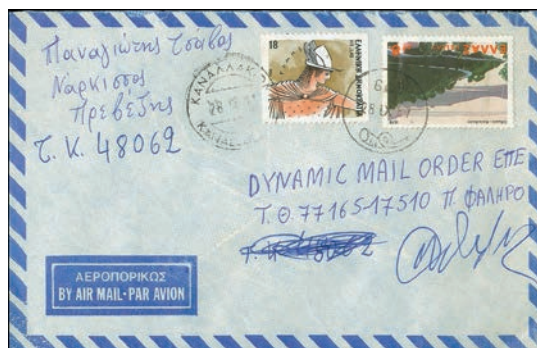 Παναγιώτης Τσάβος
Ναρκισσος
Πρεβέζης
Τ. Κ. 48062
18
ΕΛΛΗΝΙΚΗ ΔΗΜΟΚΡΑΤΙΑ
ΚΑΝΑΛΛΑΚΙ
DYNAMIC MAIL ORDER ΕΠΕ
Τ.Θ. 77165-17510 Π. ΦΑΛΗΡΟ
ΑΕΡΟΠΟΡΙΚΩΣ
BY AIR MAIL-PAR AVION